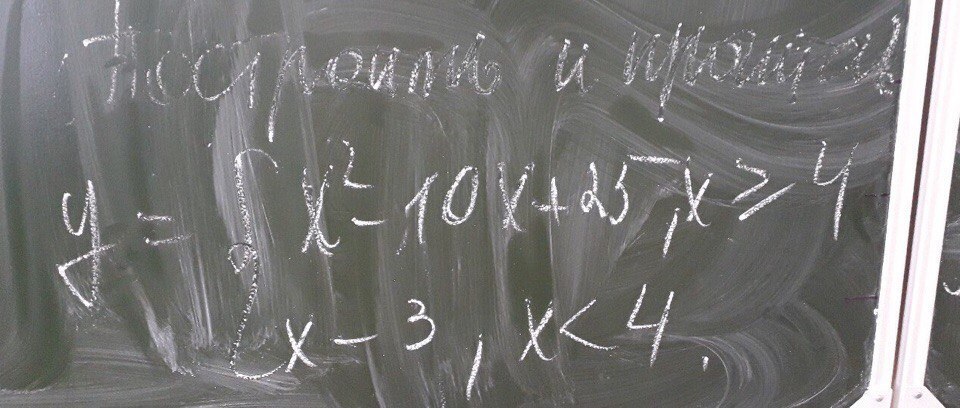 Построить и прочит
y = { x² - 10x + 25, x ≥ 4
x - 3, x < 4.